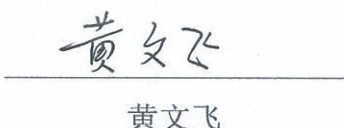 黄文飞
黄文飞